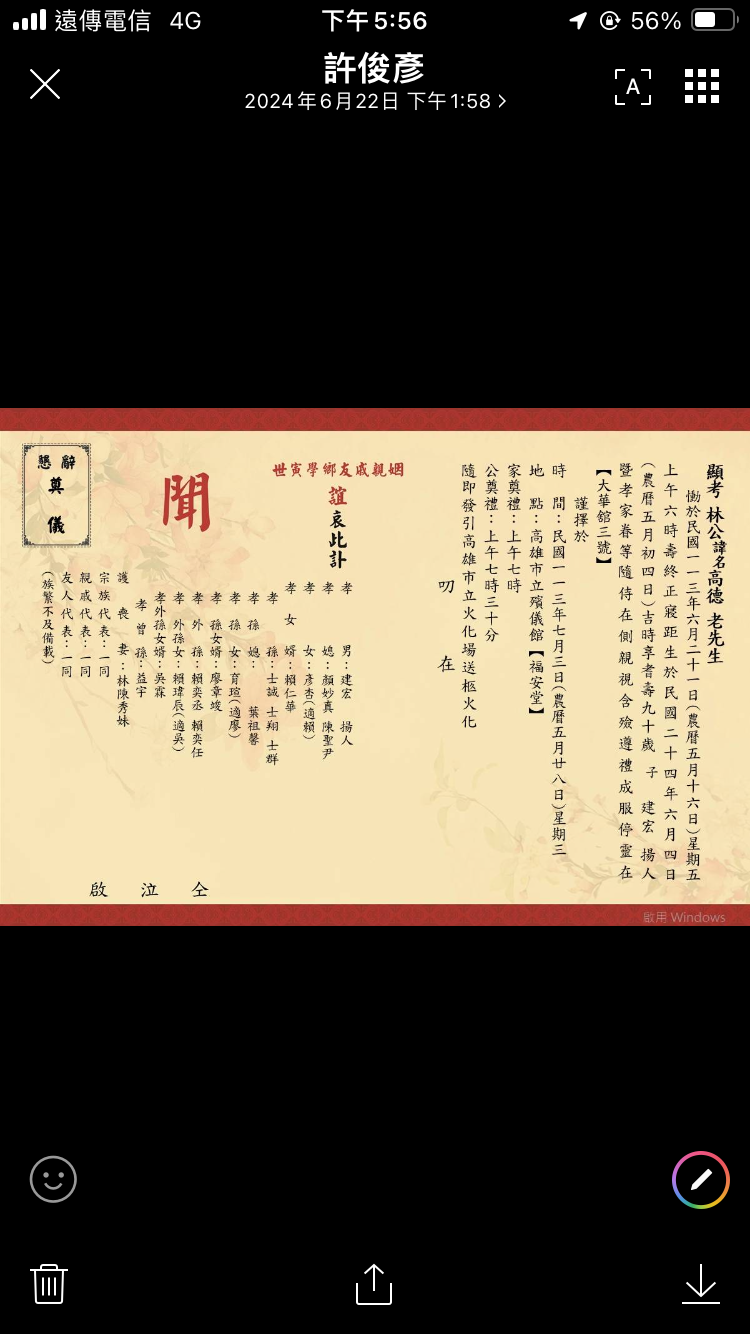 遠傳電信 4G
下午5:56
56%
許俊彥
2024年6月22日 下午1:58
A
顯考 林公諱名高德 老先生
慟於民國一一三年六月二十一日(農曆五月十六日)星期五
上午六時壽終正寢距生於民國二十四年六月四日
(農曆五月初四日)吉時享耆壽九十歲 子 建宏 揚人
暨孝家眷等隨侍在側親視含殮遵禮成服停靈在
【大華館三號】
謹擇於
時 間:民國一一三年七月三日(農曆五月廿八日)星期三
地 點:高雄市立殯儀館【福安堂】
家奠禮:上午七時
公奠禮:上午七時三十分
隨即發引高雄市立火化場送柩火化
叨 在
姻親戚友鄉學寅世
誼哀此訃
聞
孝 男:建宏 揚人
孝 媳:顏妙真 陳聖尹
孝 女:彥杏(適賴)
孝 女 婿:賴仁華
孝 孫:士誠 士翔 士群
孝 孫 媳: 葉祖馨
孝 孫 女:育瑄(適廖)
孝 孫女婿:廖韋竣
孝 外 孫:賴奕丞 賴奕任
孝 外孫女:賴瑋辰(適吳)
孝外孫女婿:吳霖
孝 曾 孫:益宇
護 喪 妻:林陳秀妹
宗族代表:一同
親戚代表:一同
友人代表:一同
(族繁不及備載)
仝 泣 啟
懇辭
奠
儀
啟用 Windows